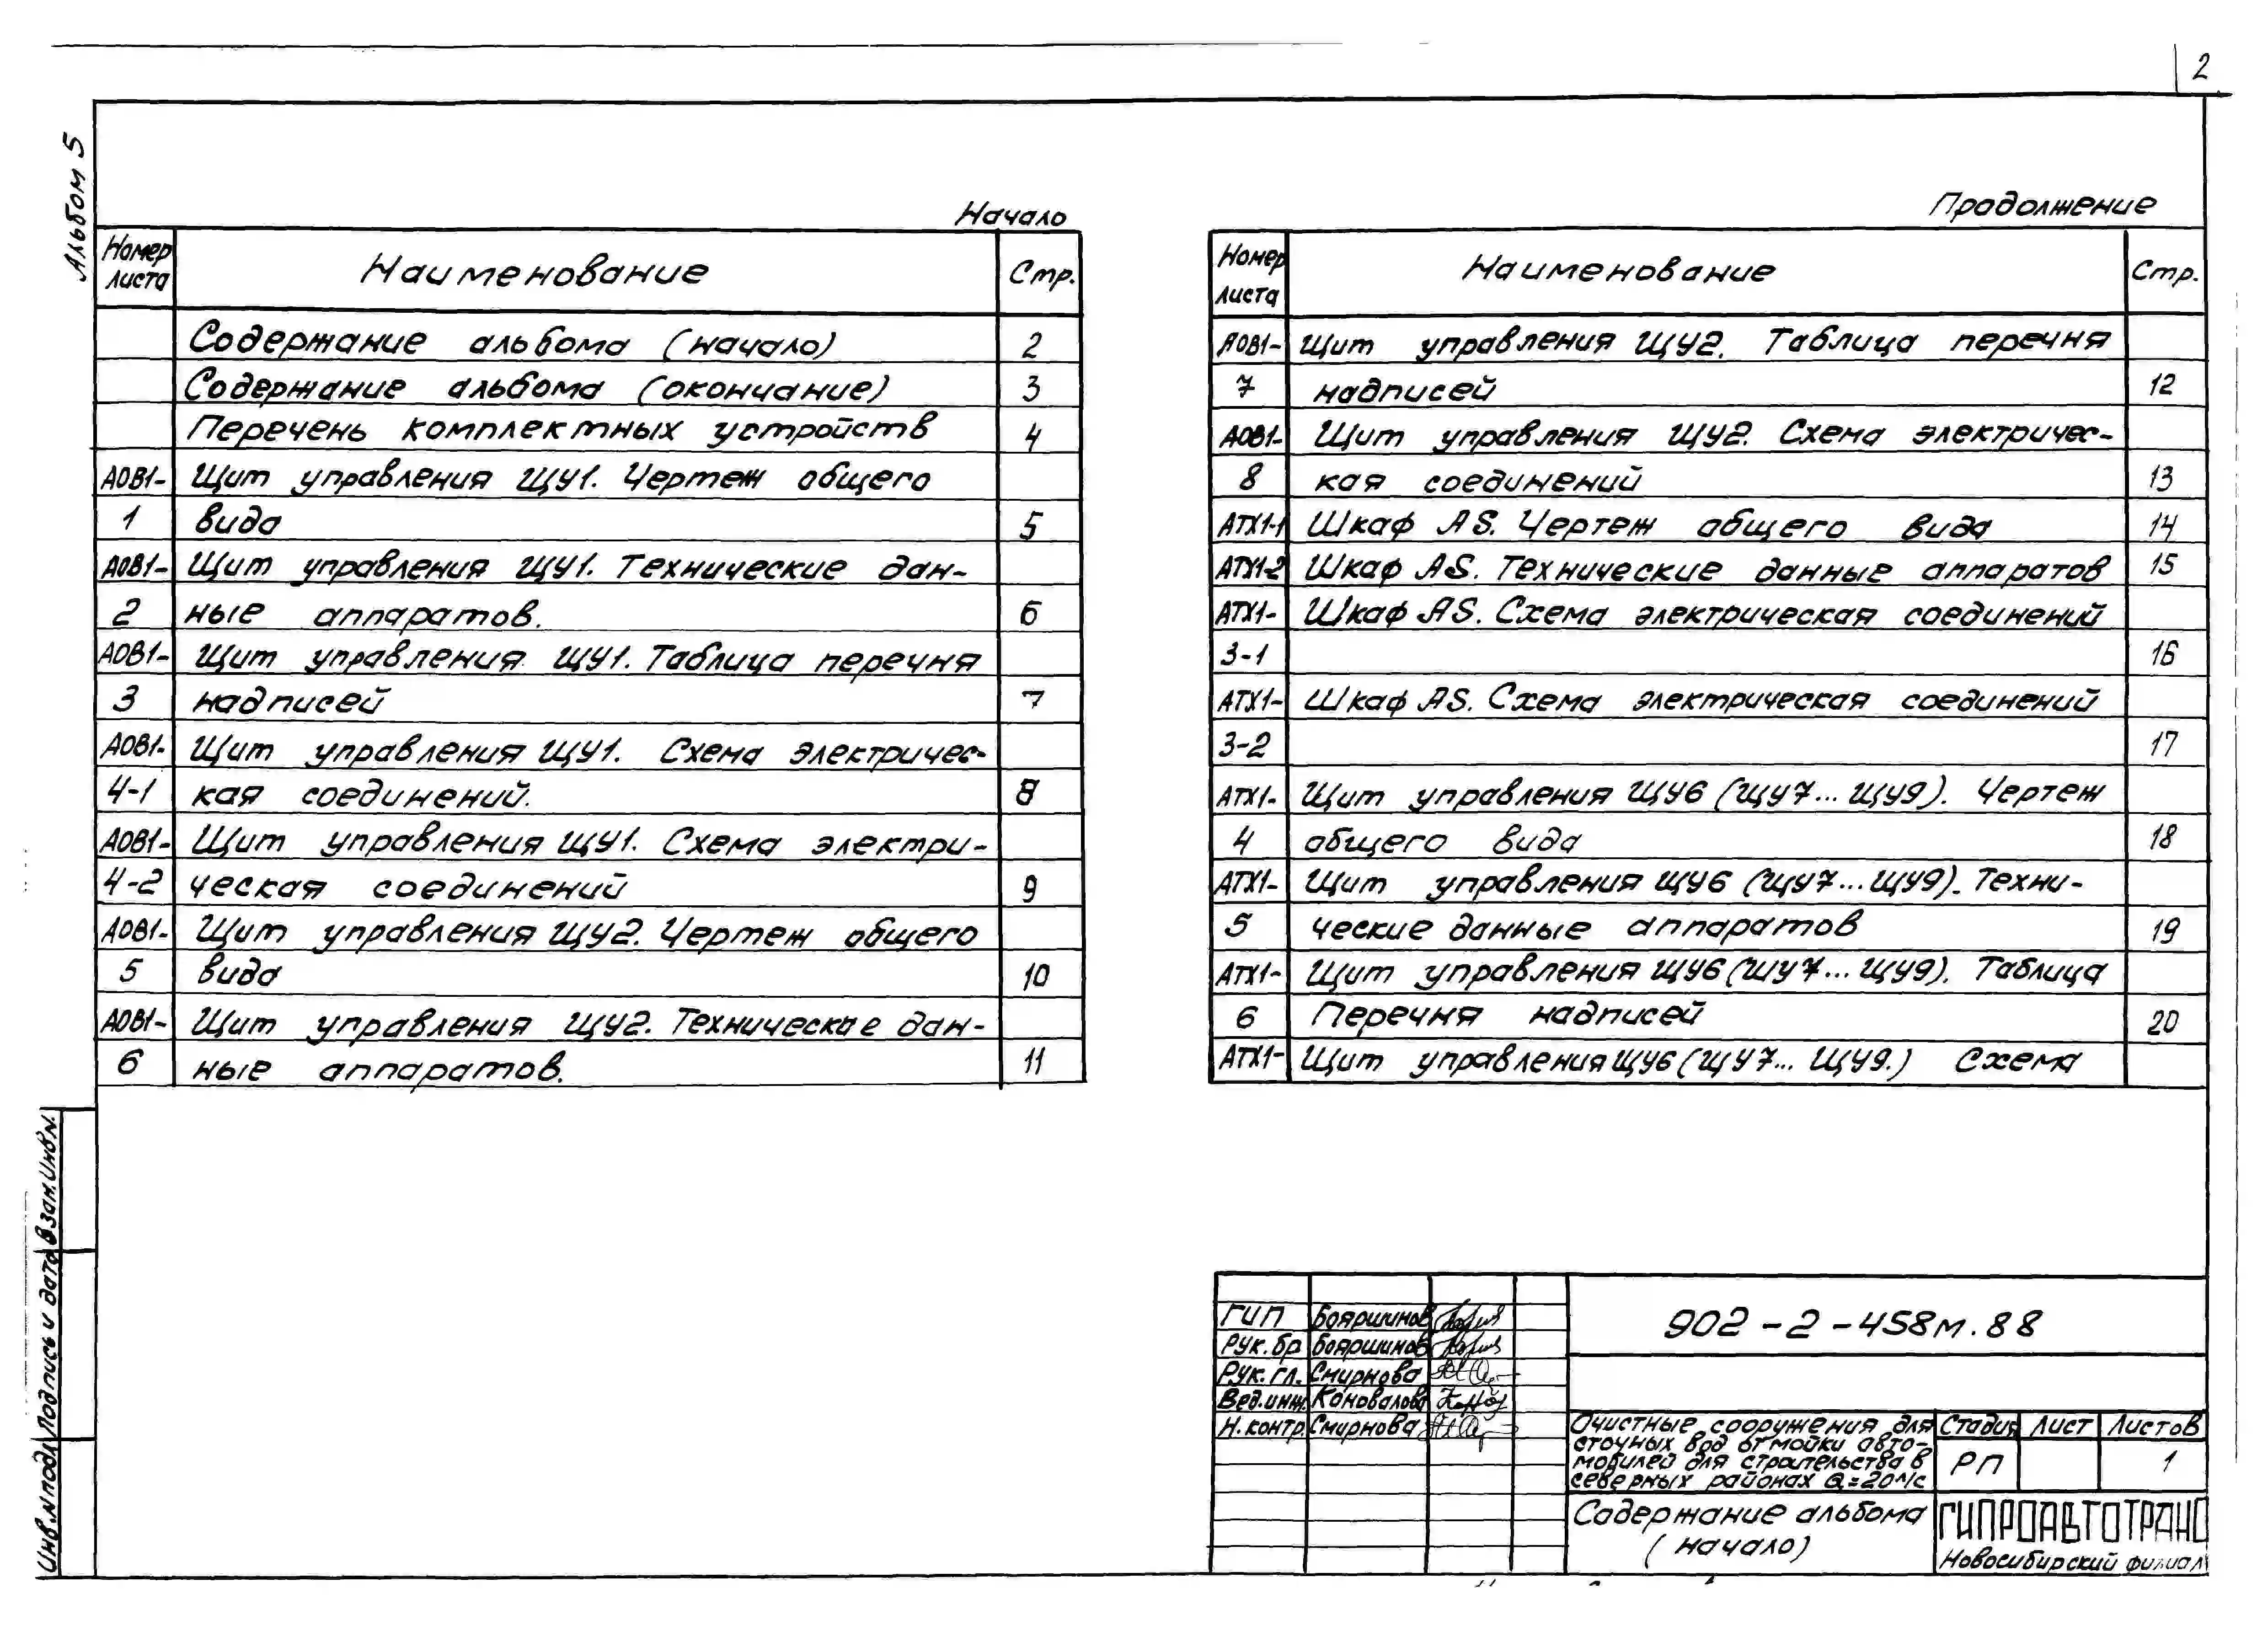 2
Альбом 5
Начало
Номер листа Наименование Стр.
Содержание альбома (начало) 2
Содержание альбома (окончание) 3
Перечень комплектных устройств 4
АОВ1- Щит управления ЩУ1. Чертеж общего
1 вида 5
АОВ1- Щит управления ЩУ1. Технические дан-
2 ные аппаратов. 6
АОВ1- Щит управления ЩУ1. Таблица перечня
3 надписей 7
АОВ1- Щит управления ЩУ1. Схема электричес-
4-1 кая соединений. 8
АОВ1- Щит управления ЩУ1. Схема электри-
4-2 ческая соединений 9
АОВ1- Щит управления ЩУ2. Чертеж общего
5 вида 10
АОВ1- Щит управления ЩУ2. Технические дан-
6 ные аппаратов. 11
Продолжение
Номер листа Наименование Стр.
АОВ1- Щит управления ЩУ2. Таблица перечня
7 надписей 12
АОВ1- Щит управления ЩУ2. Схема электричес-
8 кая соединений 13
АТХ1-1 Шкаф AS. Чертеж общего вида 14
АТХ1-2 Шкаф AS. Технические данные аппаратов 15
АТХ1- Шкаф AS. Схема электрическая соединений
3-1 16
АТХ1- Шкаф AS. Схема электрическая соединений
3-2 17
АТХ1- Щит управления ЩУ6 (ЩУ7... ЩУ9). Чертеж
4 общего вида 18
АТХ1- Щит управления ЩУ6 (ЩУ7... ЩУ9). Техни-
5 ческие данные аппаратов 19
АТХ1- Щит управления ЩУ6 (ЩУ7... ЩУ9). Таблица
6 Перечня надписей 20
АТХ1- Щит управления ЩУ6 (ЩУ7... ЩУ9.) Схема
Инв.N подл. Подпись и дата Взам.Инв N.
ГИП Бояршинов
Рук. бр Бояршинов
Рук. гл. Смирнова
Вед.инж. Коновалова
Н. контр. Смирнова
902-2-458м.88
Очистные сооружения для
сточных вод от мойки авто-
мобилей для строительства в
северных районах Q=20л/с
Стадия Лист Листов
РП 1
Содержание альбома
(начало)
ГИПРОАВТОТРАНС
Новосибирский филиал